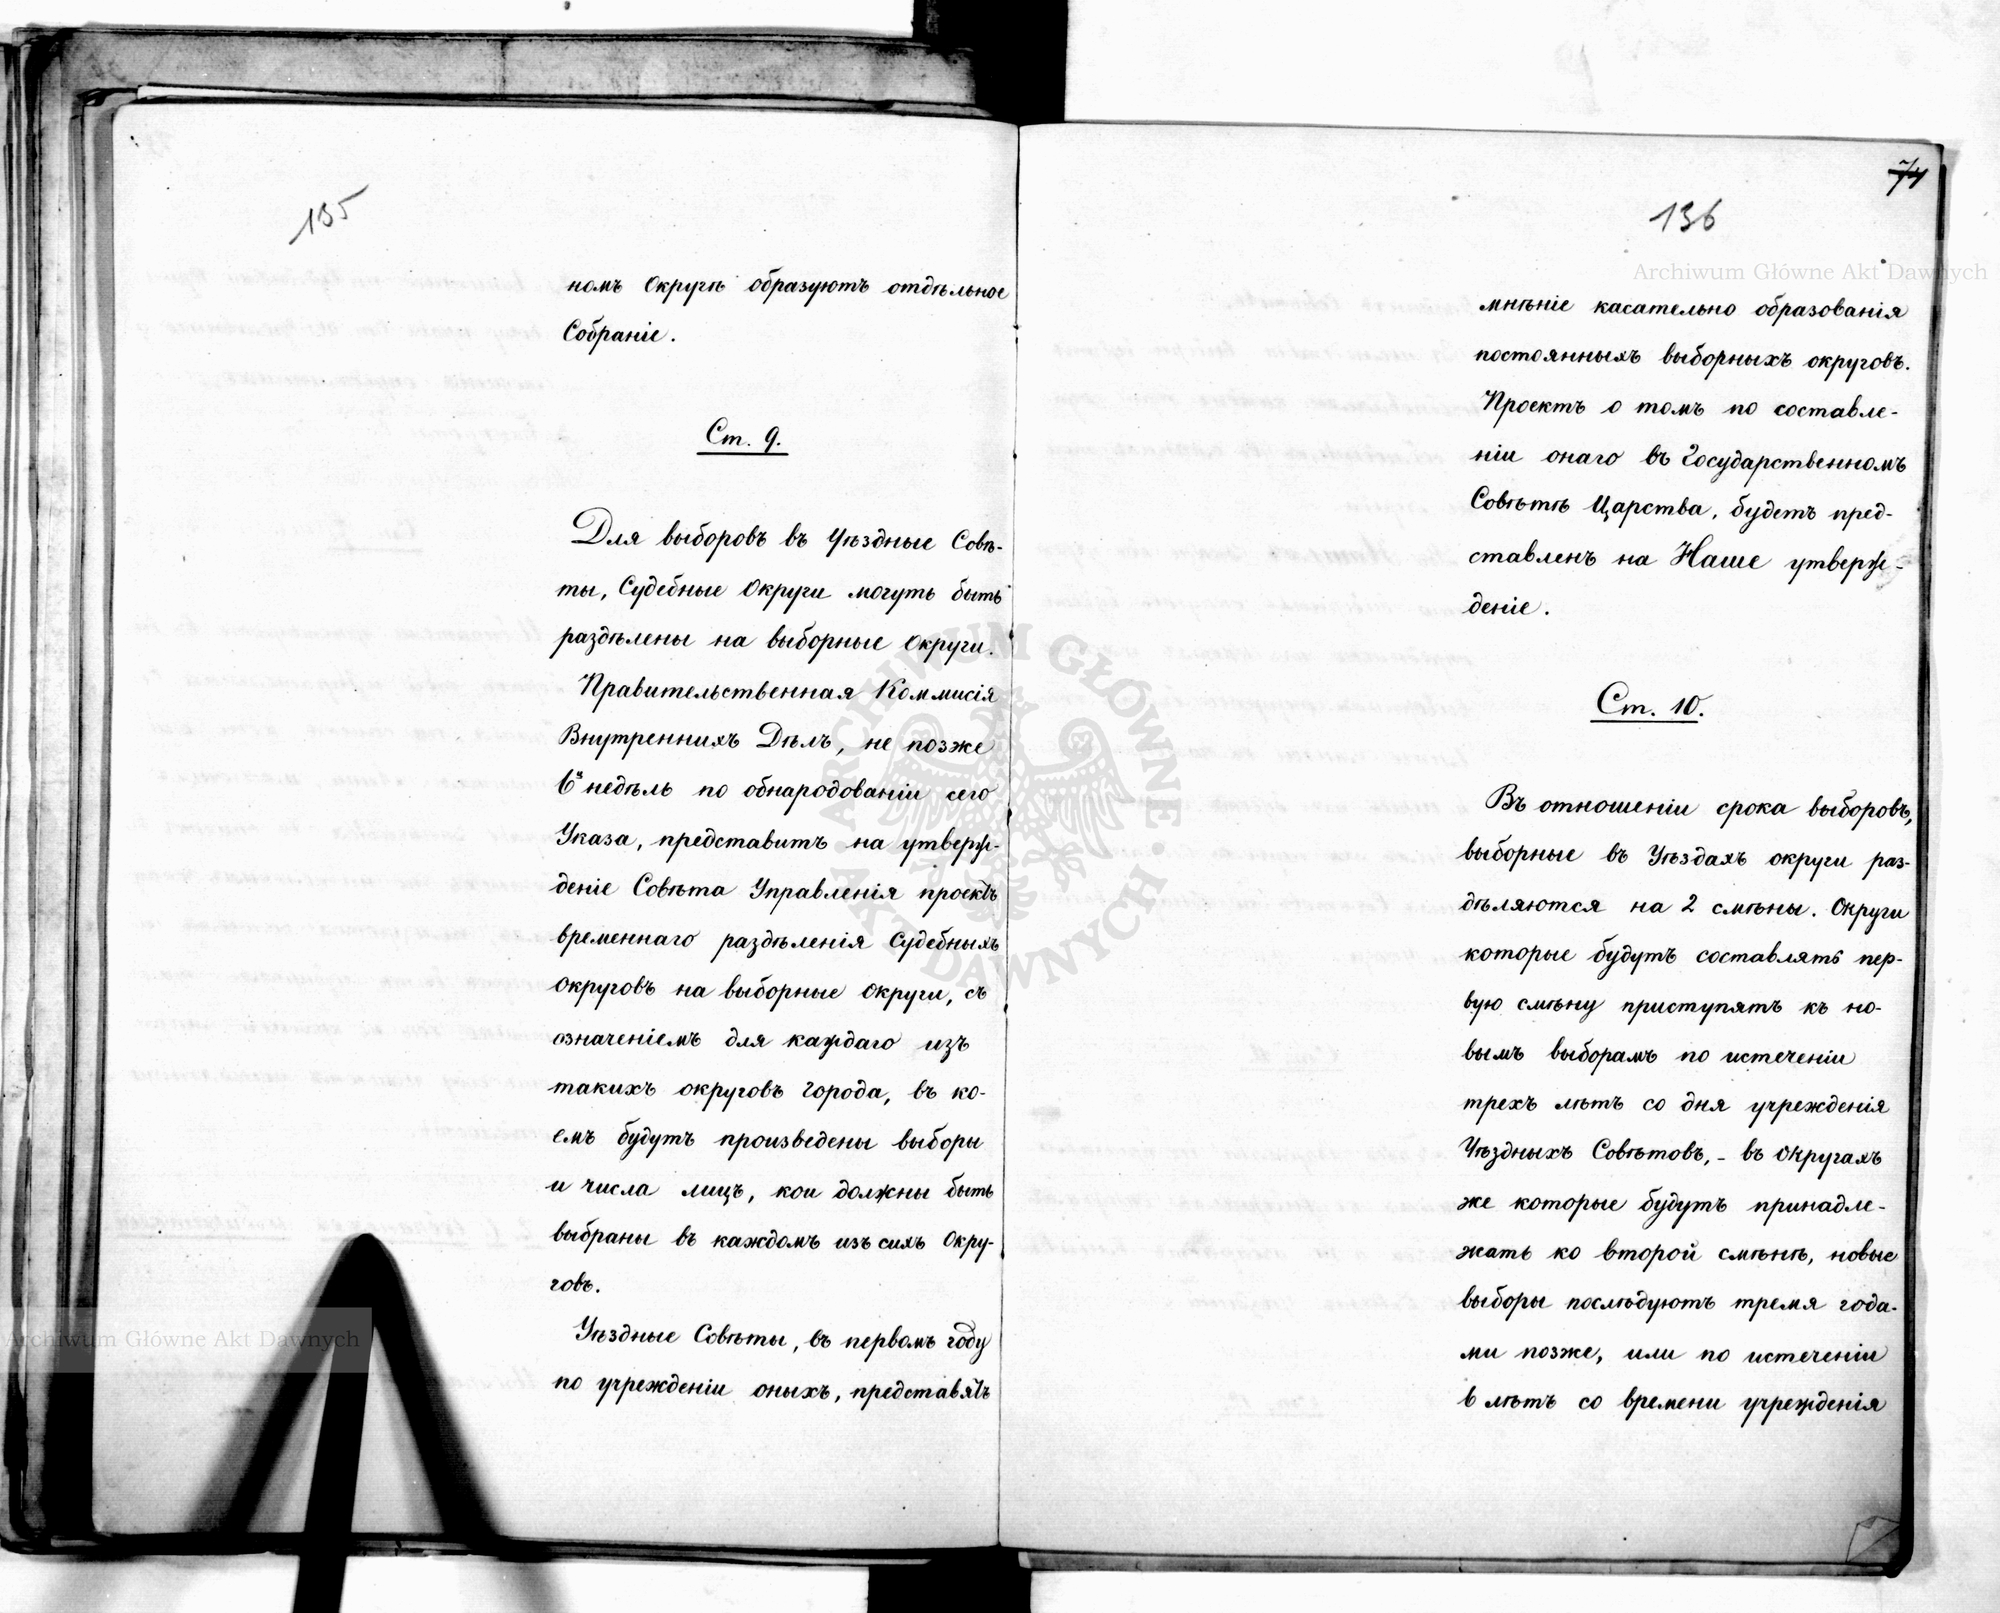 135
номъ Округѣ образуютъ отдѣльное
Собраніе.
Ст. 9.
Для выборовъ въ Уѣздные Совѣ-
ты, Судебные Округи могутъ быть
раздѣлены на выборные Округи.
Правительственная Коммисія
Внутреннихъ Дѣлъ, не позже
6ᵘ недѣль по обнародованіи сего
Указа, представитъ на утверж-
деніе Совѣта Управленія проектъ
временнаго раздѣленія Судебныхъ
Округовъ на выборные Округи, съ
означеніемъ для каждаго изъ
такихъ округовъ города, въ ко-
емъ будутъ произведены выборы
и числа лицъ, кои должны быть
выбраны въ каждомъ изъ сихъ Окру-
говъ.
Уѣздные Совѣты, въ первомъ году
по учрежденіи оныхъ, представятъ
74
136
мнѣніе касательно образованія
постоянныхъ выборныхъ округовъ.
Проектъ о томъ по составле-
ніи онаго въ Государственномъ
Совѣтѣ Царства, будетъ пред-
ставленъ на Наше утверж-
деніе.
Ст. 10.
Въ отношеніи срока выборовъ,
выборные въ Уѣздахъ округи раз-
дѣляются на 2 смѣны. Округи
которые будутъ составлять пер-
вую смѣну приступятъ къ но-
вымъ выборамъ по истеченіи
трехъ лѣтъ со дня учрежденія
Уѣздныхъ Совѣтовъ, - въ Округахъ
же которые будутъ принадле-
жать ко второй смѣнѣ, новые
выборы послѣдуютъ тремя года-
ми позже, или по истеченіи
6 лѣтъ со времени учрежденія
Archiwum Główne Akt Dawnych
Archiwum Główne Akt Dawnych
ARCHIWUM GŁÓWNE · AKT DAWNYCH ·